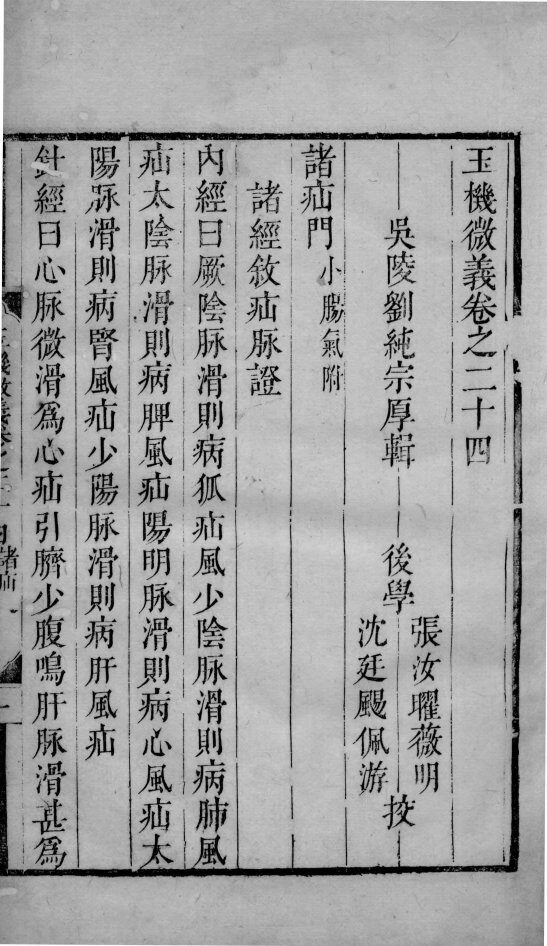 玉機微義卷之二十四
吳陵劉純宗厚輯 後學 張汝曜薇明 沈廷颺佩游 挍
諸疝門 小腸氣附
諸經敘疝脉證
內經曰厥陰脉滑則病狐疝風少陰脉滑則病肺風
疝太陰脉滑則病脾風疝陽明脉滑則病心風疝太
陽脉滑則病腎風疝少陽脉滑則病肝風疝
針經曰心脉微滑爲心疝引臍少腹鳴肝脉滑甚爲
諸疝 一